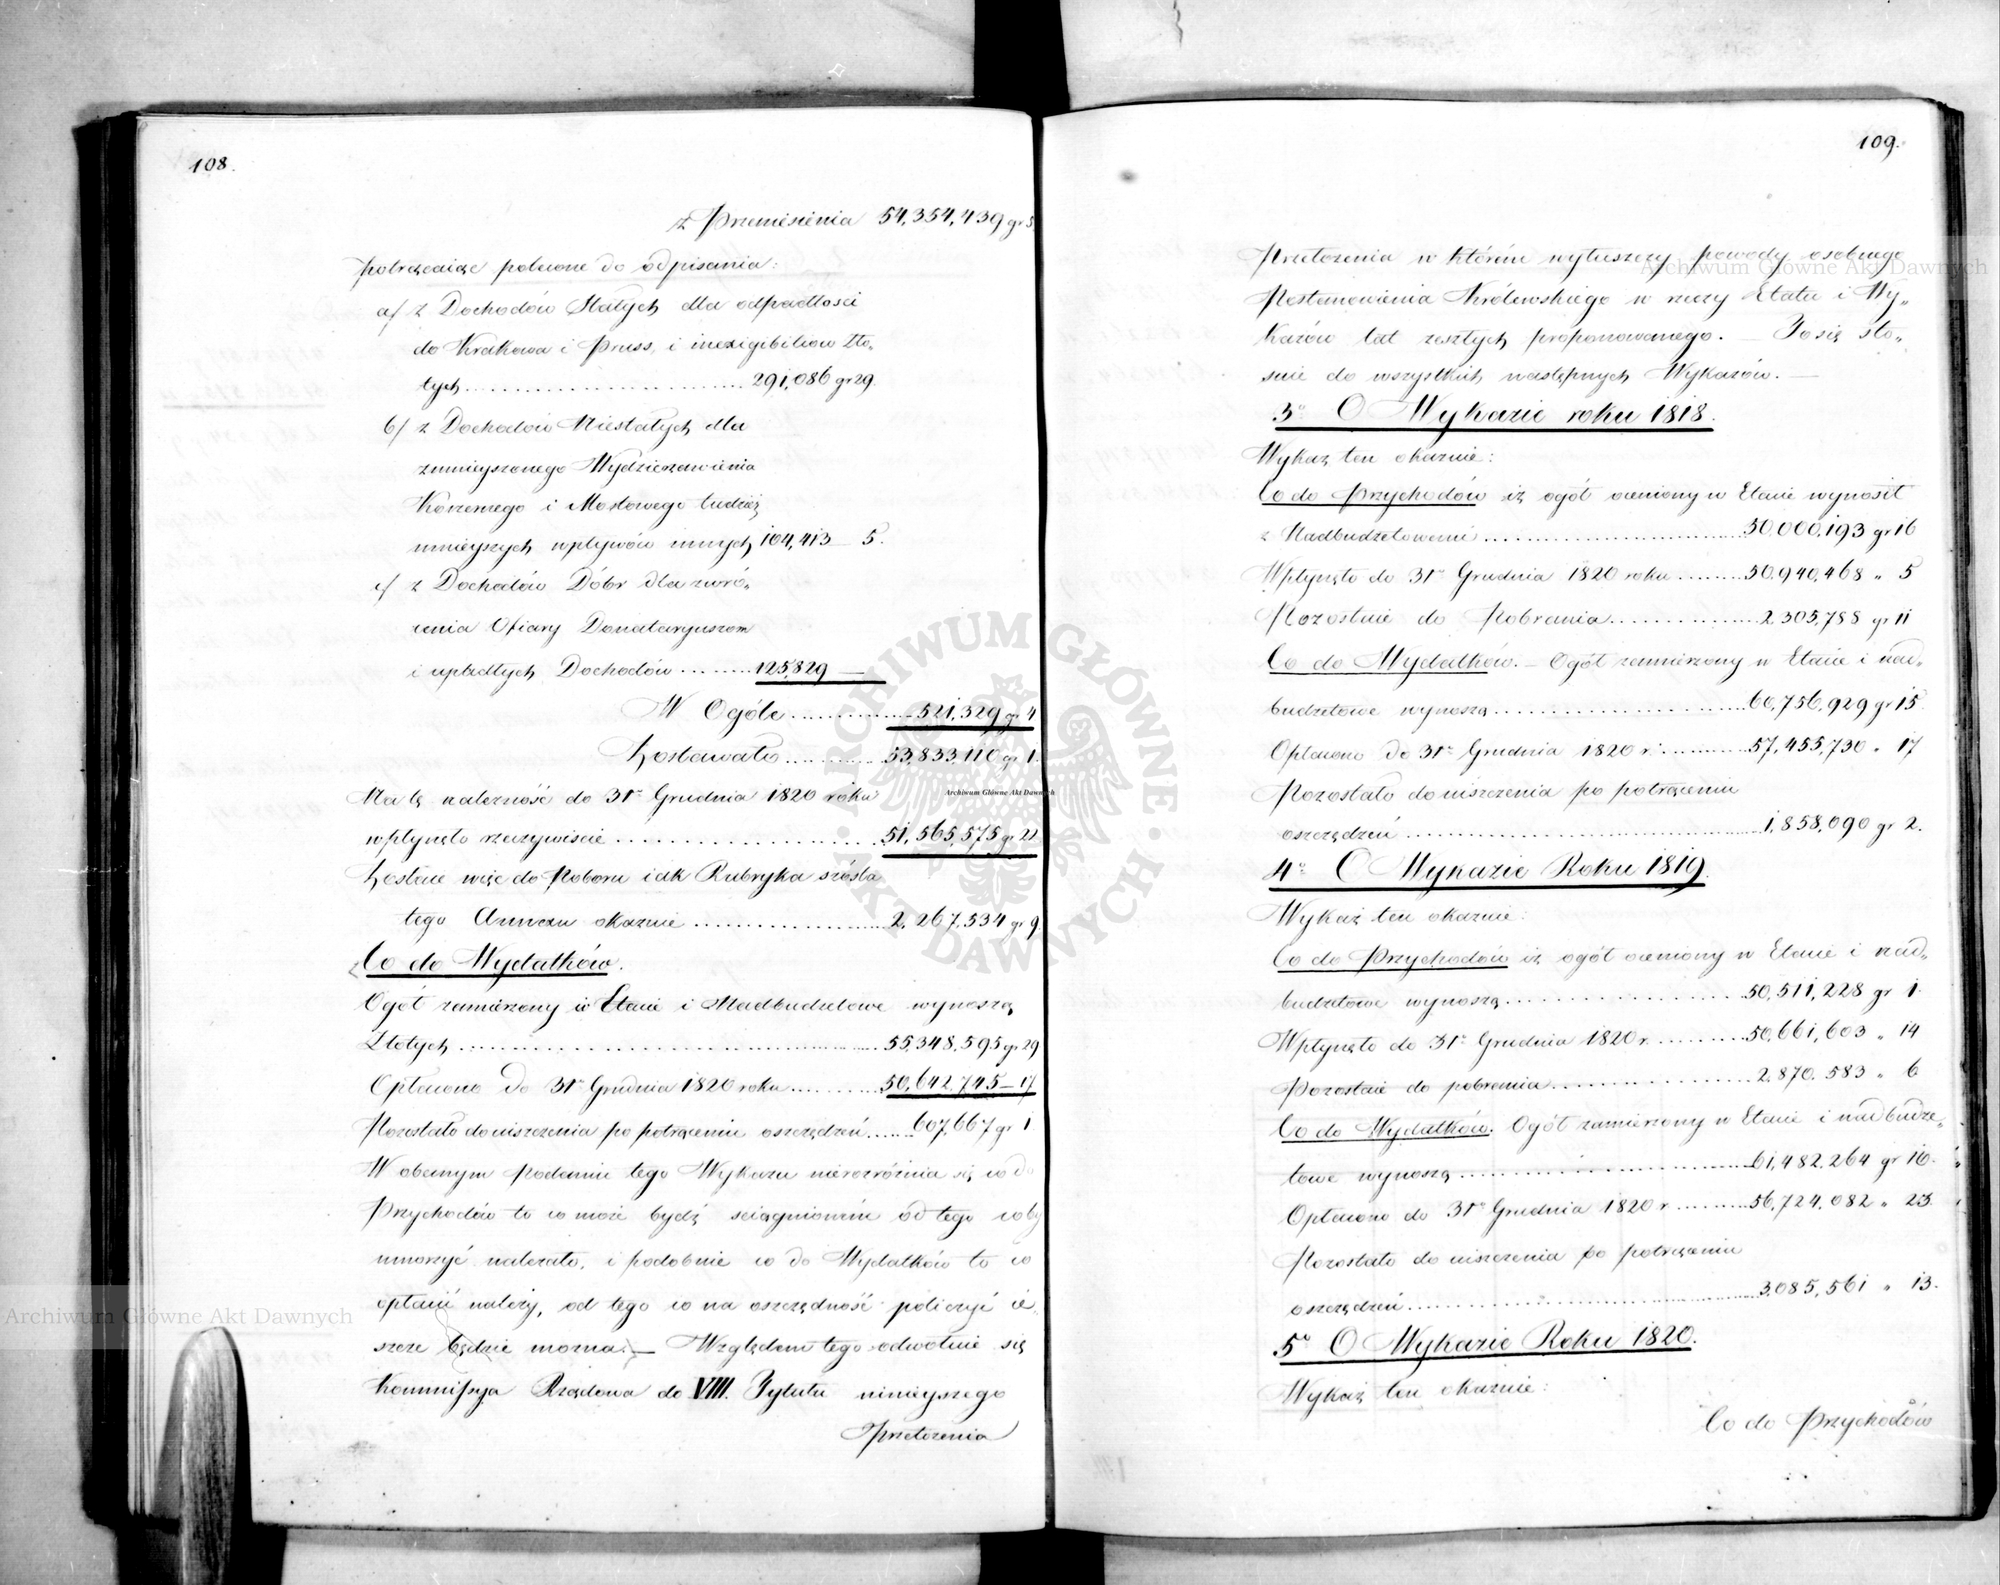 108.
z Przeniesienia 54,354,439 gr 5
potrącaiąc polecone do odpisania:
a/ z Dochodów Stałych dla odpadłości
do Krakowa i Pruss, i inexigibiliow Zło-
tych .......... 291,086 gr 29.
b/ z Dochodów Niestałych dla
zmnieyszonego Wydzierzawienia
Koszernego i Mostowego tudzież
mnieyszych wpływów innych 104,413 – 5.
c/ z Dochodów Dóbr dla zwró-
cenia Ofiary Donataryuszom
i upadłych Dochodów ........ 125,829 —
W Ogóle .......... 521,329 gr 4
Zostawało .......... 53,833,110 gr 1.
Na tę należność do 31go Grudnia 1820 roku
wpłynęło rzeczywiście .......... 51,565,575 gr 22
Zostaie więc do Poboru iak Rubryka szósta
tego Annexu okazuie .......... 2,267,534 gr 9
Co do Wydatków.
Ogół zamierzony w Etacie i Nadbudzetowe wynoszą
Złotych .......... 55,348,595 gr 29
Opłacono do 31go Grudnia 1820 roku .......... 50,642,745 – 17
Pozostało do uiszczenia po potrąceniu oszczędzeń ....... 607,667 gr 1
W obecnym podaniu tego Wykazu nierozróżnia się co do
Przychodów to co może bydź ściągnionem od tego coby
umorzyć należało, i podobnie co do Wydatków to co
opłacić należy, od tego co na oszczędność policzyć ie-
szcze będzie można. — Względem tego odwołuie się
Kommissya Rządowa do VIII. Tytułu ninieyszego
Przełożenia
109.
Przełożenia w którém wyłuszczy powody osobnego
Postanowienia Królewskiego w rzeczy Etatu i Wy-
kazów lat zeszłych proponowanego. — To się sto-
suie do wszystkich następnych Wykazów. —
3o O Wykazie roku 1818.
Wykaz ten okazuie:
Co do Przychodów iż ogół oceniony w Etacie wynosił
z Nadbudzetowemi .......... 50,000,193 gr 16
Wpłynęło do 31go Grudnia 1820 roku ........ 50,940,468 „ 5
Pozostaie do Pobrania .......... 2,305,788 gr 11
Co do Wydatków. – Ogół zamierzony w Etacie i nad-
budzetowe wynoszą .......... 60,756,929 gr 15.
Opłacono do 31go Grudnia 1820 r. .......... 57,455,730 „ 17
Pozostało do uiszczenia po potrąceniu
oszczędzeń .......... 1,858,090 gr 2.
4o O Wykazie Roku 1819.
Wykaz ten okazuie:
Co do Przychodów iż ogół oceniony w Etacie i nad-
budzetowe wynoszą .......... 50,511,228 gr 1.
Wpłynęło do 31go Grudnia 1820 r. .......... 50,661,603 „ 14
Pozostaie do pobrania .......... 2,870,583 „ 6
Co do Wydatków. Ogół zamierzony w Etacie i nadbudze-
towe wynoszą .......... 61,482,264 gr 16.
Opłacono do 31go Grudnia 1820 r .......... 56,724,082 „ 23.
Pozostało do uiszczenia po potrąceniu
oszczędzeń .......... 3,085,561 „ 13.
5o O Wykazie Roku 1820.
Wykaz ten okazuie:
Co do Przychodów
Archiwum Główne Akt Dawnych
Archiwum Główne Akt Dawnych
Archiwum Główne Akt Dawnych
ARCHIWUM GŁÓWNE AKT DAWNYCH